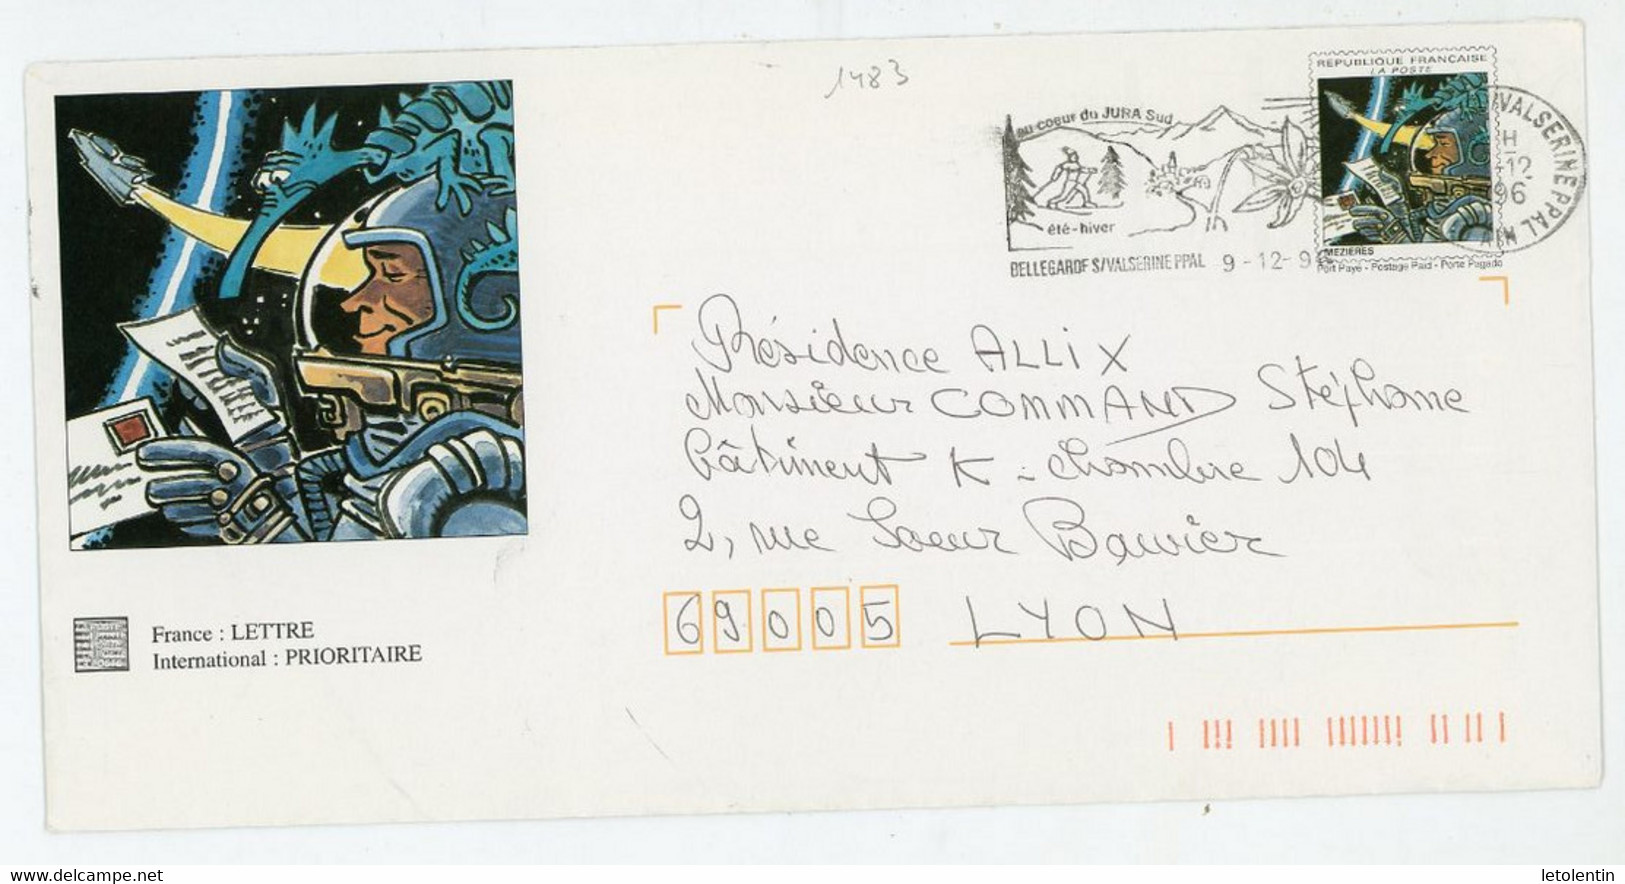 1483
REPUBLIQUE FRANCAISE
LA POSTE
au coeur du JURA Sud
été-hiver
BELLEGARDE S/VALSERINE PPAL 9-12-96
VALSERINE PPAL
H
-12-
96
AIN
MEZIERES
Port Payé - Postage Paid - Porte Pagado
Résidence ALLIX
Monsieur COMMAND Stéphane
bâtiment K - chambre 104
2, rue Soeur Bouvier
69005 LYON
France : LETTRE
International : PRIORITAIRE
delcampe.net
letolentin